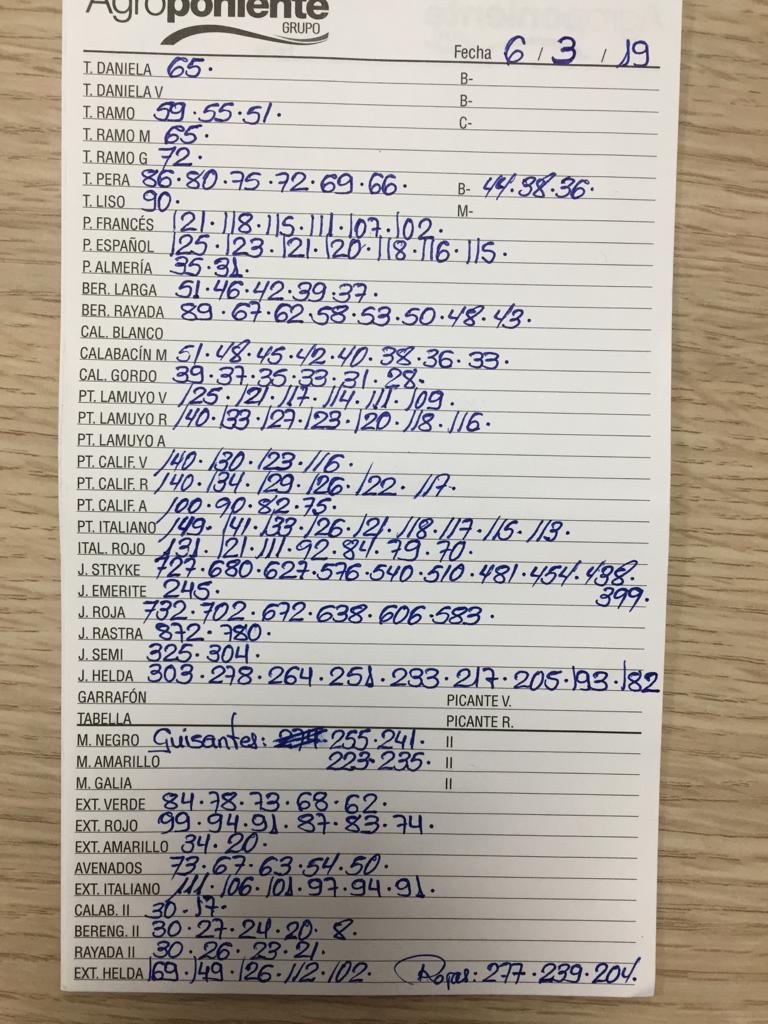 Agroponiente
GRUPO
Fecha 6 / 3 / 19
T. DANIELA 65. B-
T. DANIELA V B-
T. RAMO 59.55.51. C-
T. RAMO M 65.
T. RAMO G 72.
T. PERA 86.80.75.72.69.66. B- 44.38.36.
T. LISO 90. M-
P. FRANCÉS 121.118.115.111.107.102.
P. ESPAÑOL 125.123.121.120.118.116.115.
P. ALMERÍA 35.31.
BER. LARGA 51.46.42.39.37.
BER. RAYADA 89.67.62.58.53.50.48.43.
CAL. BLANCO
CALABACÍN M 51.48.45.42.40.38.36.33.
CAL. GORDO 39.37.35.33.31.28.
PT. LAMUYO V 125.121.117.114.111.109.
PT. LAMUYO R 140.133.127.123.120.118.116.
PT. LAMUYO A
PT. CALIF. V 140.130.123.116.
PT. CALIF. R 140.134.129.126.122.117.
PT. CALIF. A 100.90.82.75.
PT. ITALIANO 149.141.133.126.121.118.117.115.113.
ITAL. ROJO 131.121.111.92.84.79.70.
J. STRYKE 727.680.627.576.540.510.481.454.438.
J. EMERITE 245. 399.
J. ROJA 732.702.672.638.606.583.
J. RASTRA 872.780.
J. SEMI 325.304.
J. HELDA 303.278.264.251.233.217.205.193.182
GARRAFÓN PICANTE V.
TABELLA PICANTE R.
M. NEGRO Guisantes: 255.241. II
M. AMARILLO 223.235. II
M. GALIA II
EXT. VERDE 84.78.73.68.62.
EXT. ROJO 99.94.91.87.83.74.
EXT. AMARILLO 34.20.
AVENADOS 73.67.63.54.50.
EXT. ITALIANO 111.106.101.97.94.91.
CALAB. II 30.17.
BERENG. II 30.27.24.20.8.
RAYADA II 30.26.23.21.
EXT. HELDA 169.149.126.112.102. Rojas: 277.239.204.